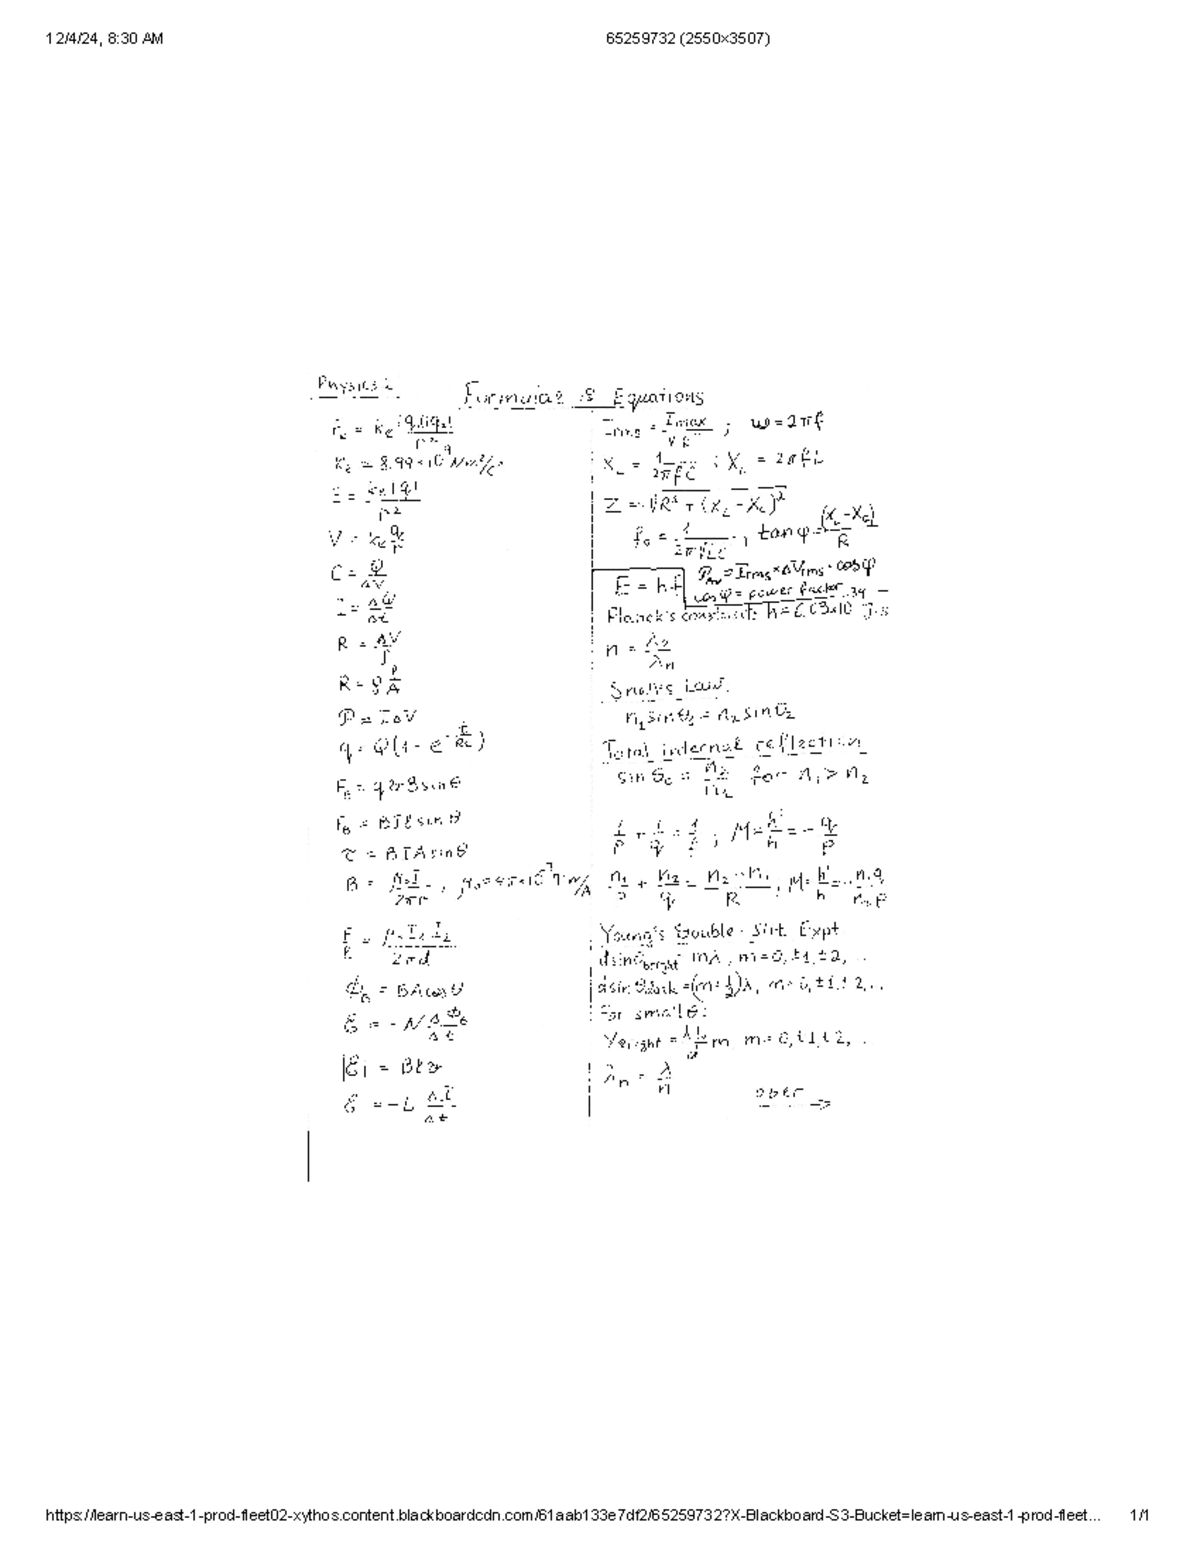 12/4/24, 8:30 AM
65259732 (2550×3507)
Physics 2
Formulae & Equations
F_e = k_e |q_1||q_2| / r^2
k_e = 8.99×10^9 Nm^2/C^2
E = k_e|q| / r^2
V = k_e q/r
C = Q/ΔV
I = ΔQ/Δt
R = ΔV/I
R = ρ l/A
P = IΔV
q = Q(1 - e^(-t/RC))
F_B = qvB sinθ
F_B = BIℓ sinθ
τ = BIA sinθ
B = μ_0 I / 2πr , μ_0 = 4π×10^-7 T·m/A
F/ℓ = μ_0 I_1 I_2 / 2πd
Φ_B = BA cosθ
ε = -N ΔΦ_B/Δt
|ε| = Bℓv
ε = -L ΔI/Δt
I_rms = I_max/√2 ; ω = 2πf
X_C = 1/2πfC ; X_L = 2πfL
Z = √(R^2 + (X_L - X_C)^2)
f_0 = 1/2π√LC , tanφ = (X_L - X_C)/R
P_av = I_rms × ΔV_rms · cosφ
E = hf
cosφ = power factor
Planck's constant: h = 6.63×10^-34 J·s
n = λ_0/λ_n
Snell's Law:
n_1 sinθ_1 = n_2 sinθ_2
Total internal reflection
sin θ_c = n_2/n_1 for n_1 > n_2
1/p + 1/q = 1/f ; M = h'/h = - q/p
n_1/p + n_2/q = n_2 - n_1 / R ; M = h'/h = - n_1 q / n_2 p
Young's Double-Slit Expt
d sinθ_bright = mλ, m = 0, ±1, ±2, ...
d sinθ_dark = (m+1/2)λ, m = 0, ±1, ±2, ...
For small θ:
y_bright = λL/d m m = 0, ±1, ±2, ...
λ_n = λ/n
over →
https://learn-us-east-1-prod-fleet02-xythos.content.blackboardcdn.com/61aab133e7df2/65259732?X-Blackboard-S3-Bucket=learn-us-east-1-prod-fleet...
1/1